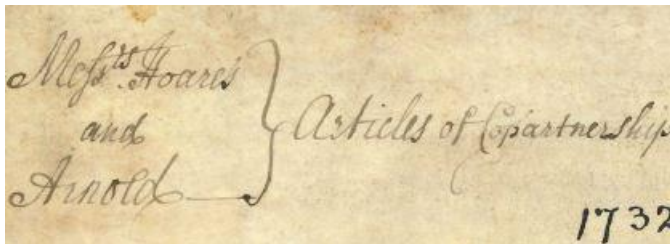 Messrs. Hoares
and
Arnold
Articles of Copartnership
1732